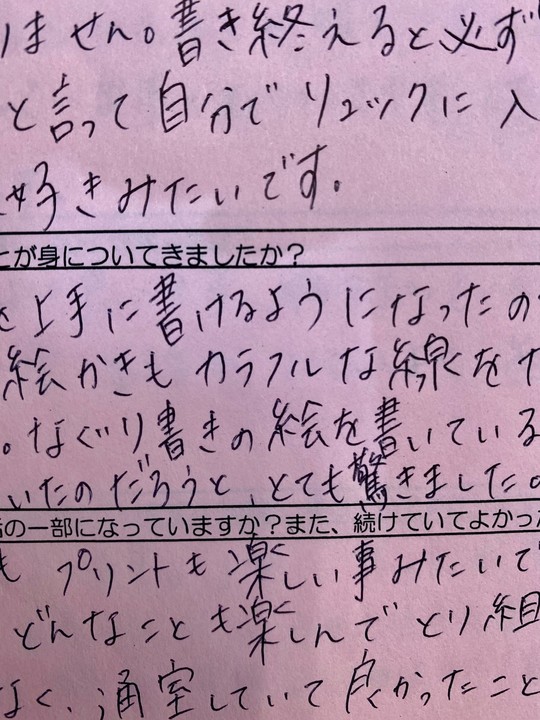 りません。書き終えると必ず
と言って自分でリュックに入
好きみたいです。
とが身についてきましたか？
を上手に書けるようになったの
絵かきもカラフルな線を
。なぐり書きの絵を書いている
いたのだろうと、とても驚きました。
の一部になっていますか？また、続けていてよかった
も プリントも楽しい事みたいで
どんなことも楽しんでとり組
なく、通室していて良かったこと